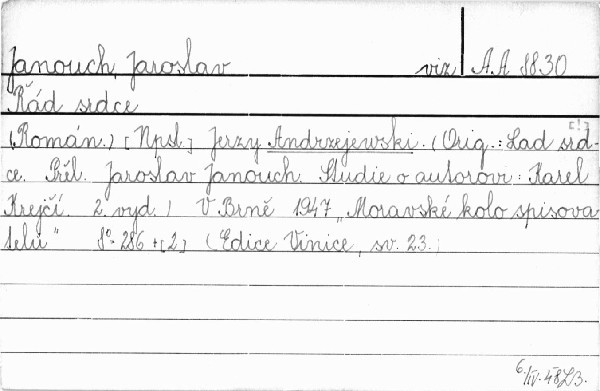 Janouch, Jaroslav viz A.A 8830
Řád srdce
(Román.) [Npsl.] Jerzy Andrzejewski. (Orig.: Lad srd- [!]
ce. Přel. Jaroslav Janouch. Studie o autorovi: Karel
Krejčí. 2. vyd.) V Brně 1947 „Moravské kolo spisova
telů“ 8° 286 + [2] (Edice Vinice, sv. 23.)
6/IV.48